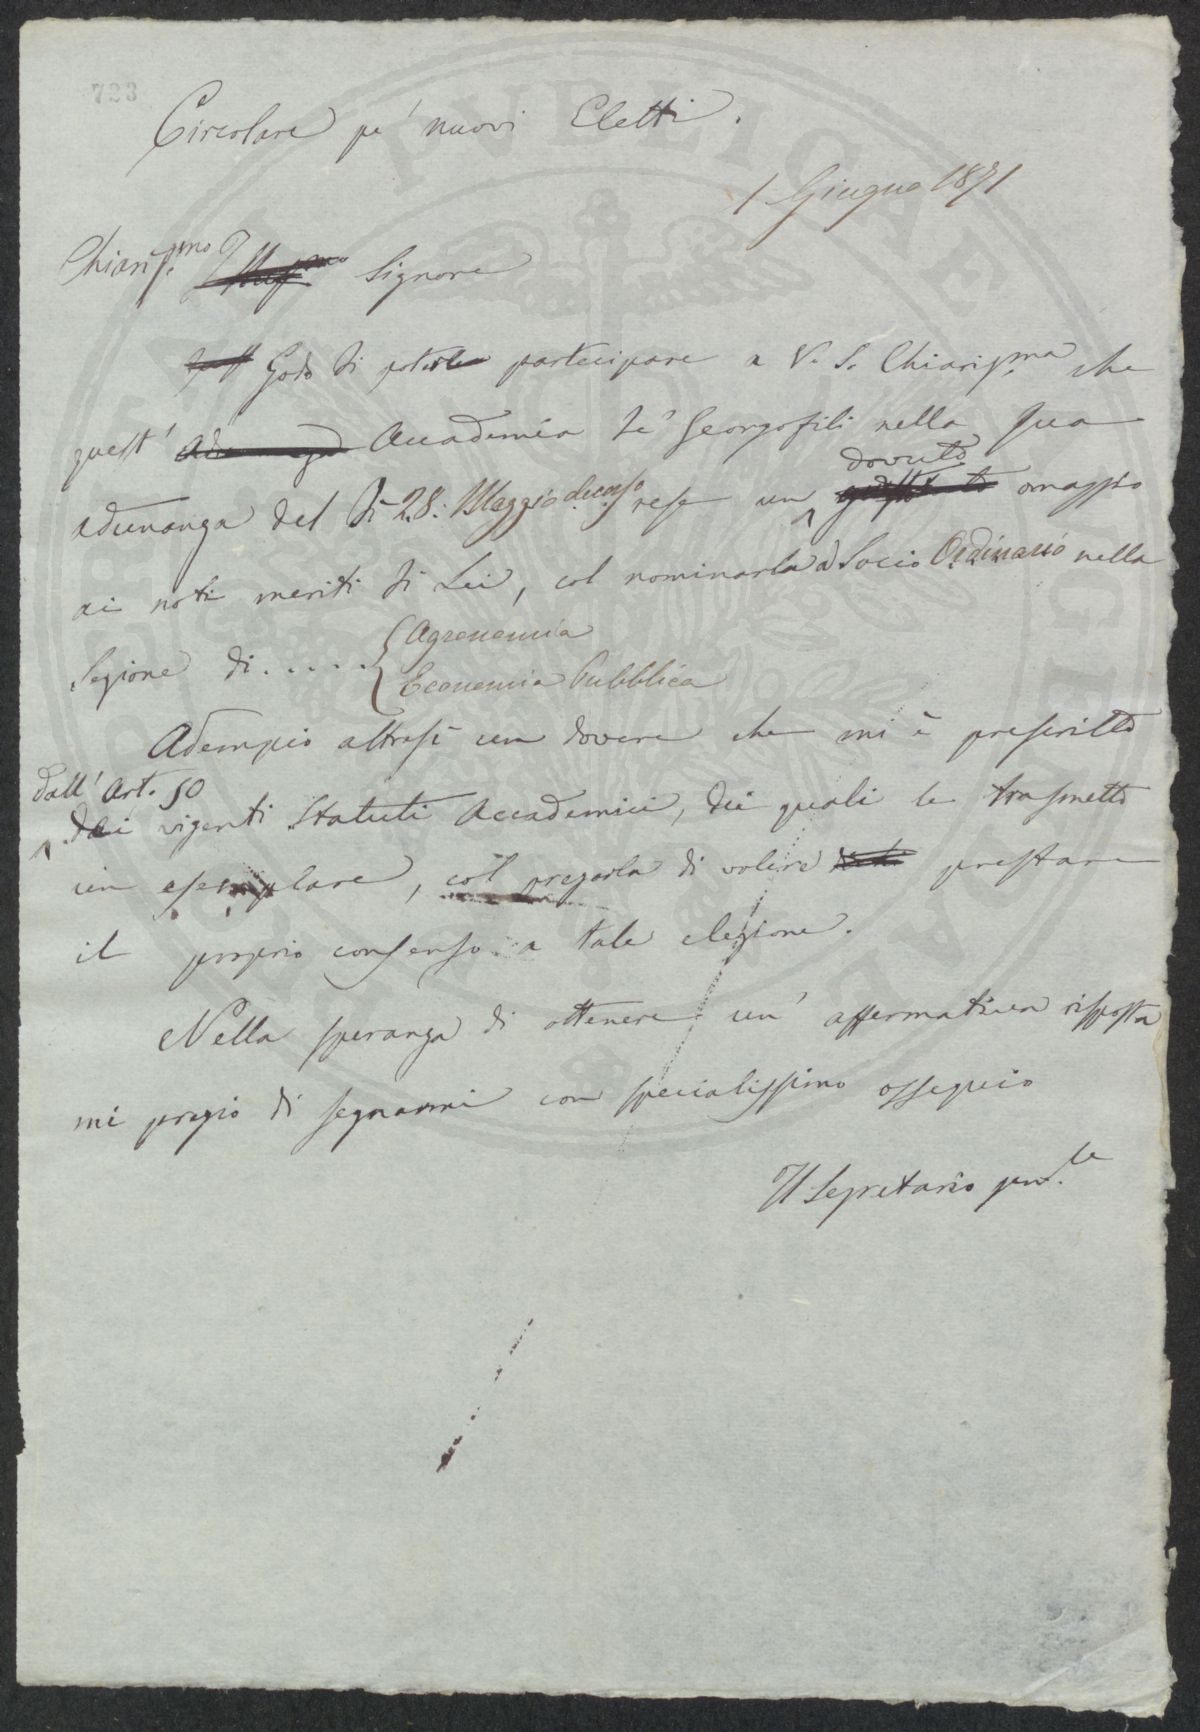 723
Circolare pe' nuovi Eletti.
1 Giugno 1871
Chiariss.mo Signore
Godo di poter partecipare a V. S. Chiariss.ma che
quest' Accademia de' Georgofili nella sua
dovuto
adunanza del dì 28. Maggio decorso rese un omaggio
ai noti meriti di Lei, col nominarla a Socio Ordinario nella
Sezione di..... { Agronomia
Economia Pubblica
Adempio altresì un dovere che mi è prescritto
dall' Art. 50
dei vigenti Statuti Accademici, dei quali le trasmetto
un esemplare, col pregarla di volere prestare
il proprio consenso a tale elezione.
Nella speranza di ottenere un' affermativa risposta
mi pregio di segnarmi con specialissimo ossequio
Il Segretario